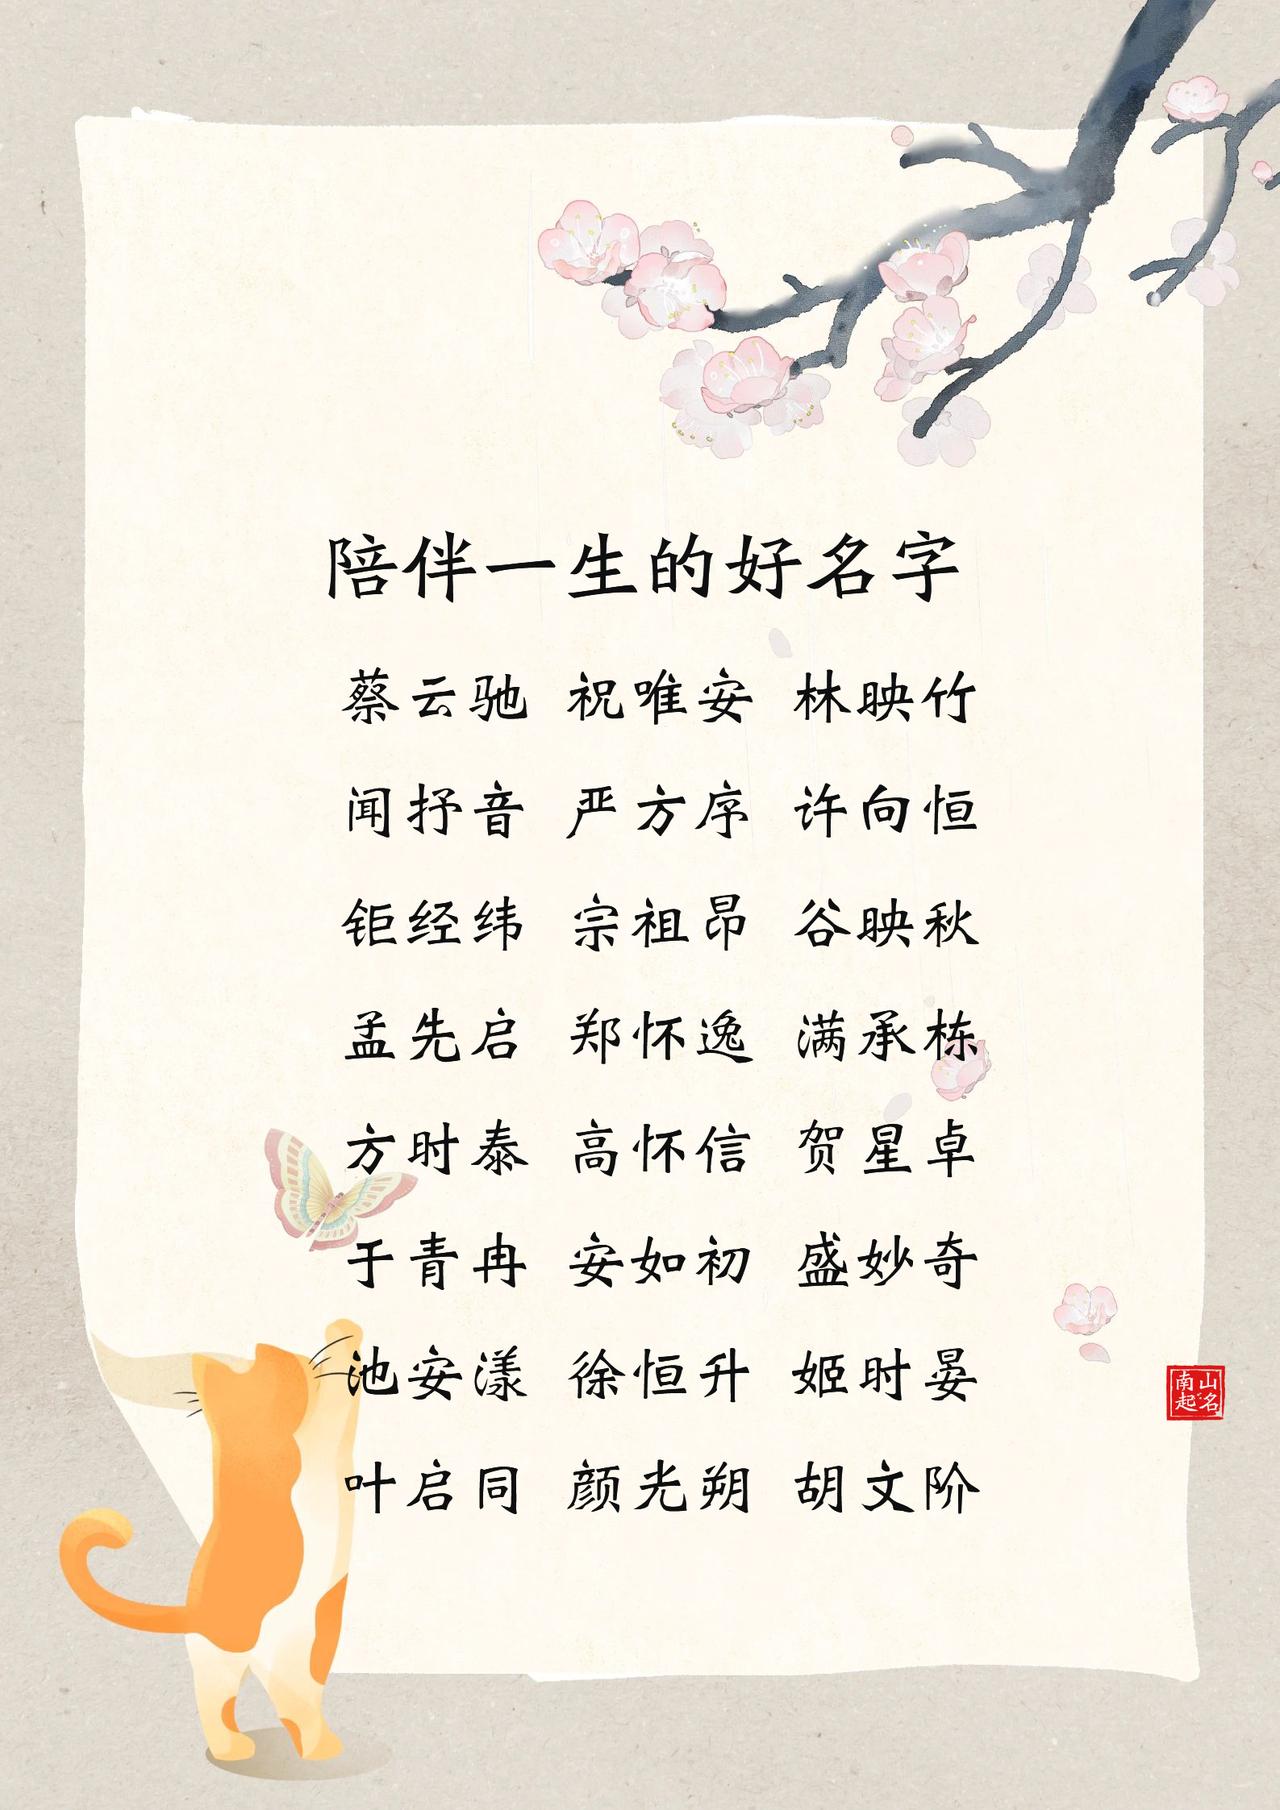 陪伴一生的好名字
蔡云驰 祝唯安 林映竹
闻抒音 严方序 许向恒
钜经纬 宗祖昂 谷映秋
孟先启 郑怀逸 满承栋
方时泰 高怀信 贺星卓
于青冉 安如初 盛妙奇
池安漾 徐恒升 姬时晏
叶启同 颜光朔 胡文阶
南山起名